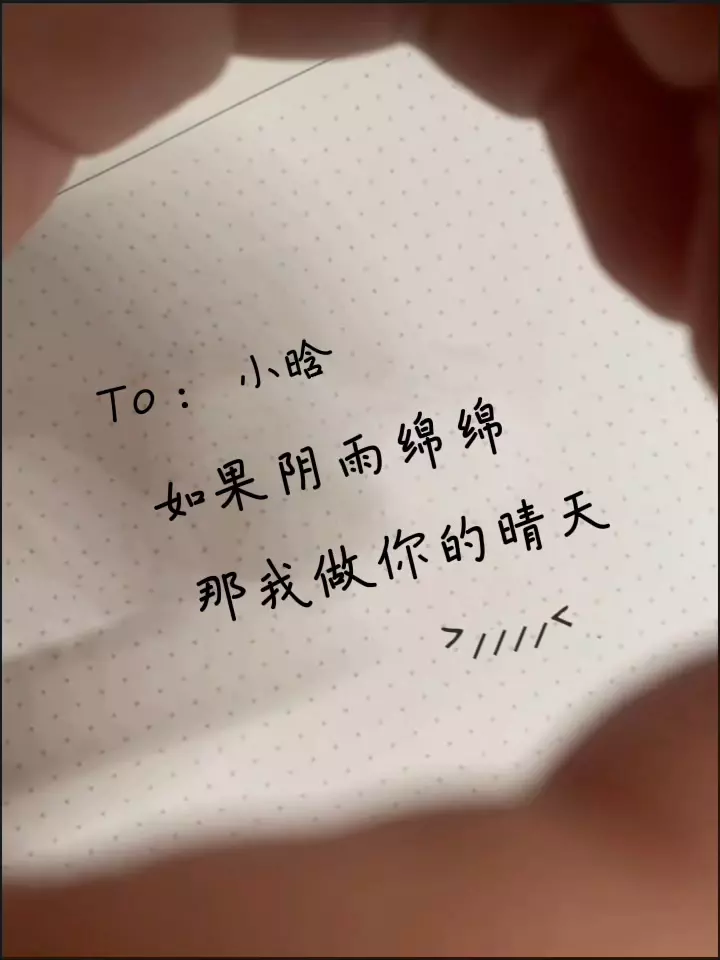 TO： 小晗
如果阴雨绵绵
那我做你的晴天
>////<